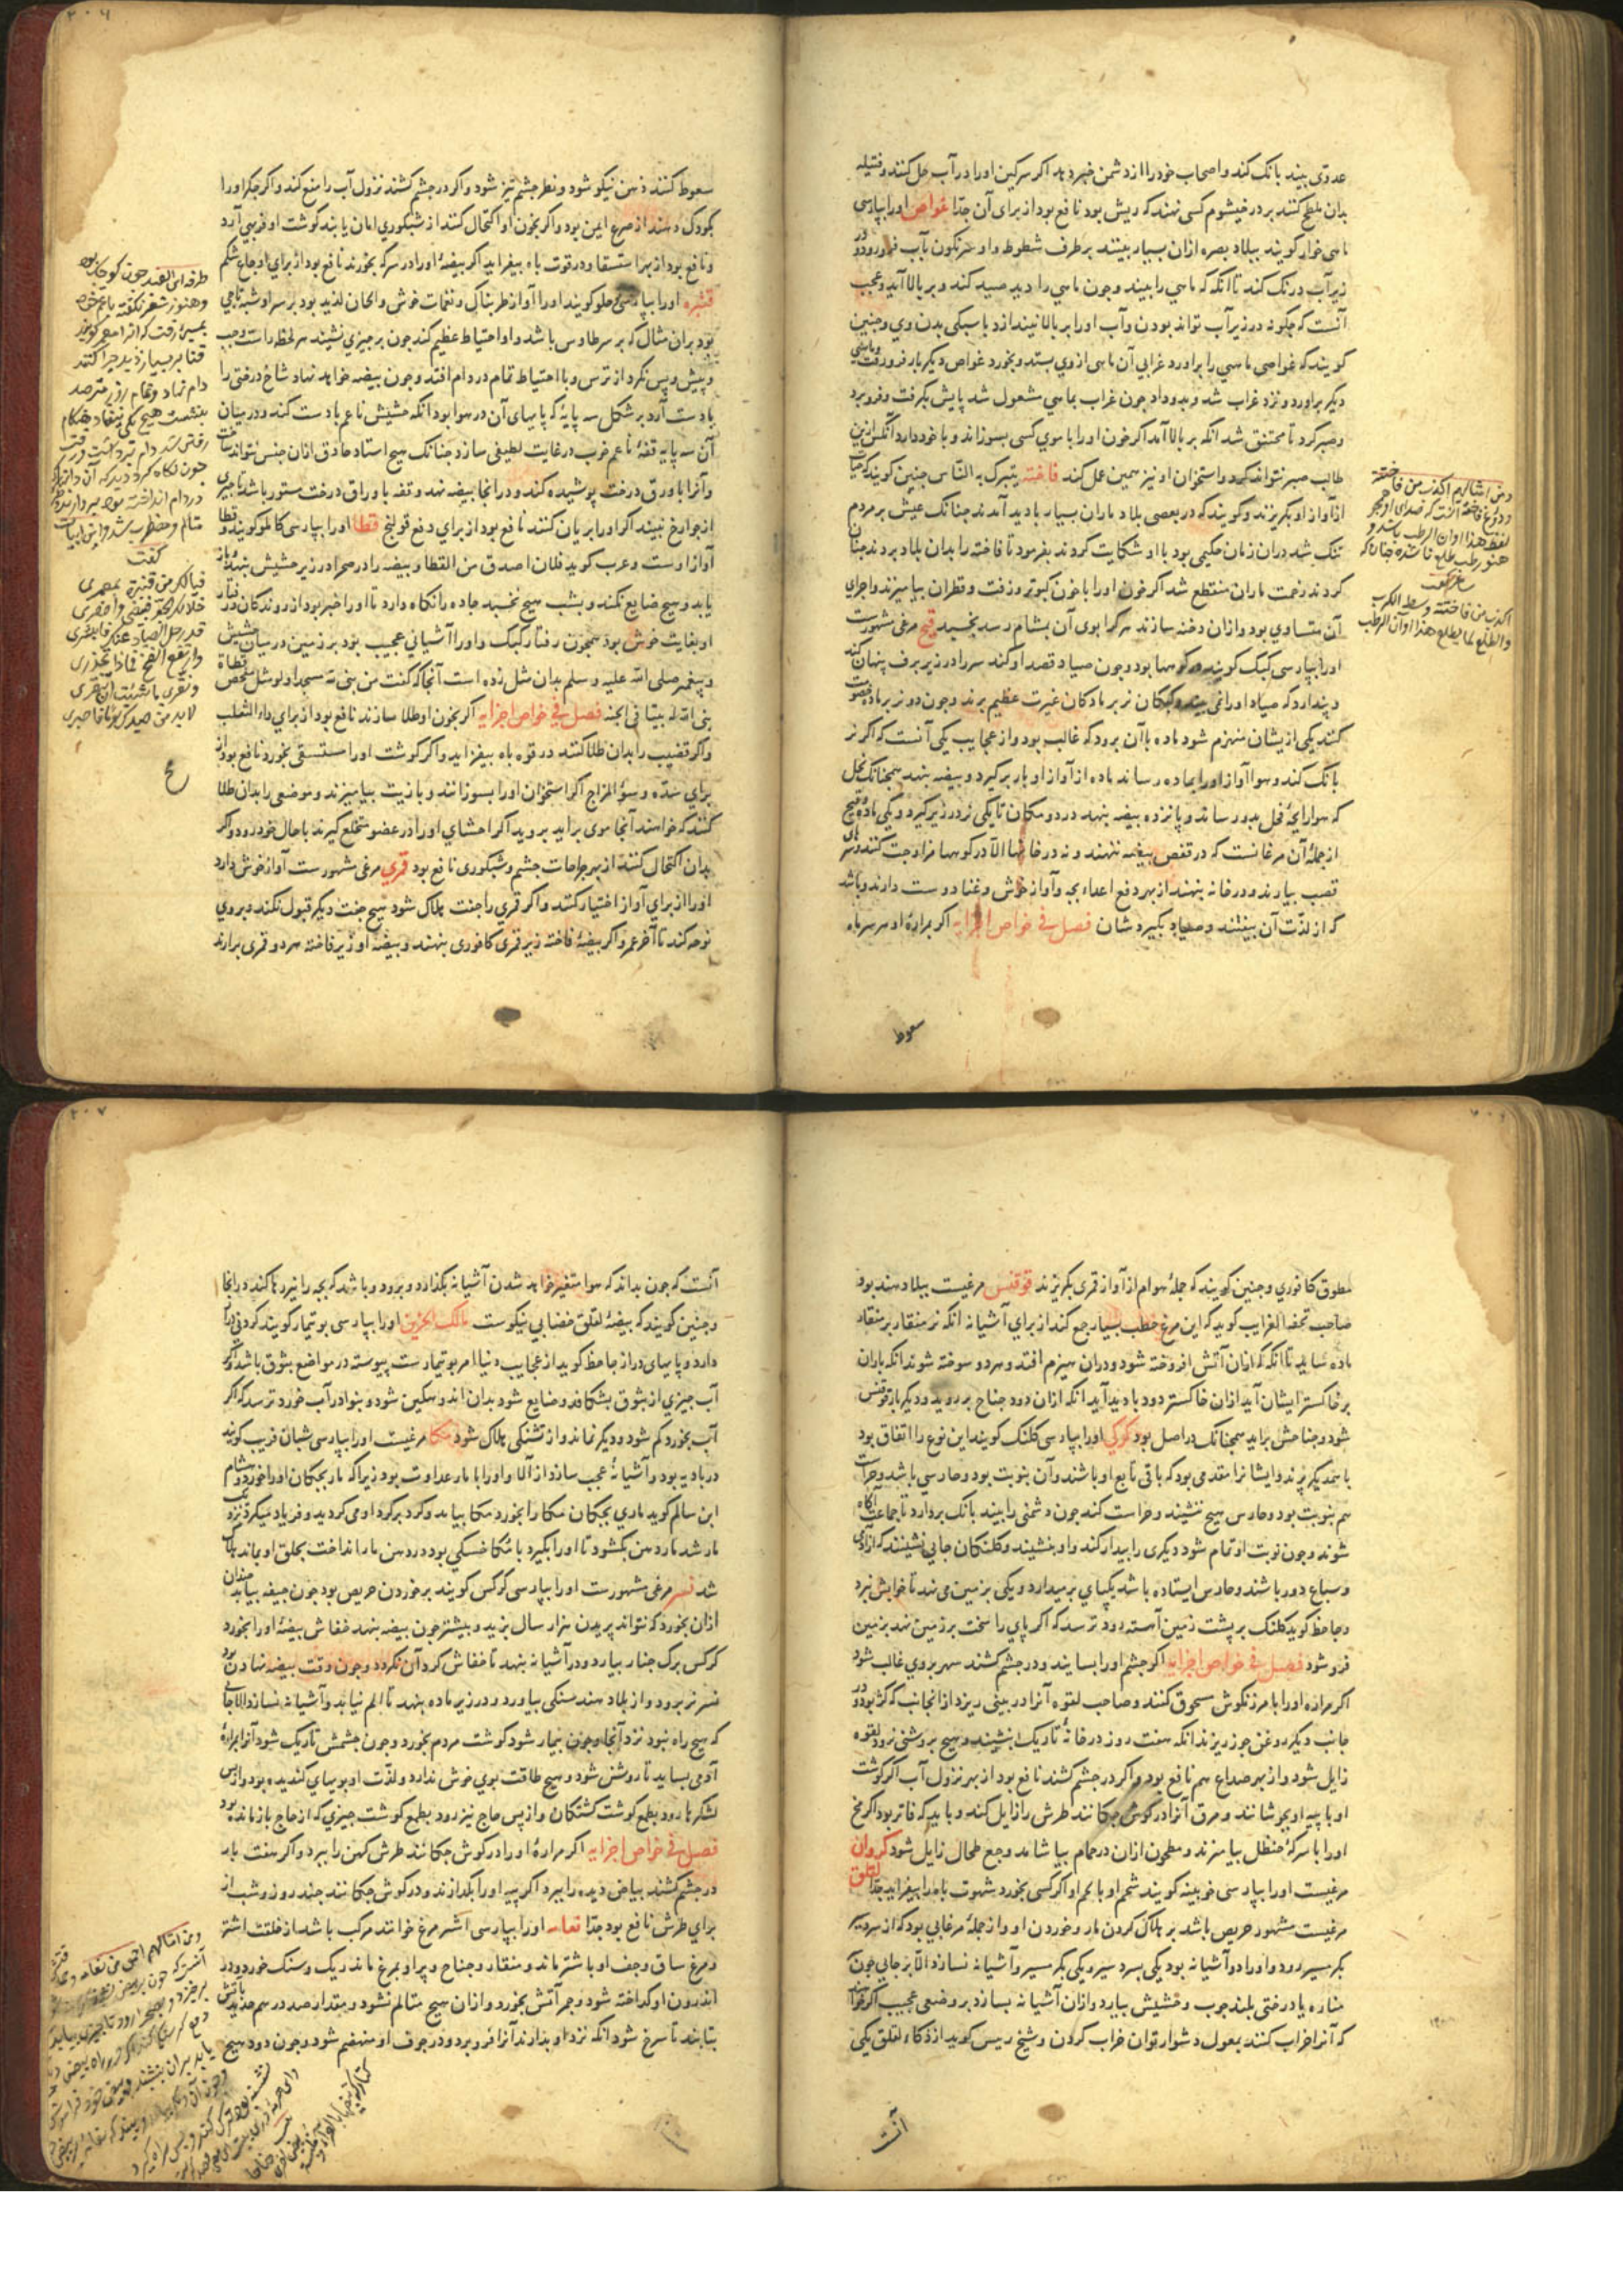 عدوّی بیند بانک کند و اصحاب خود را از دشمن خبر دهد اکر سرکین او را در آب حل کنند و فتیله
بدان ملطخ کنند بر در خیشوم کسی نهند که ریش بود نافع بود از برای آن جدّا غواص او را بپارسی
ماهی خوار کویند ببلاد بصره ازان بسیار بینند بر طرف شطوط و او سرنکون بآب فرو رود و در
زیر آب درنک کند تا آنکه که ماهی را بیند و چون ماهی را دید صید کند و بر بالا آید و عجب
آنست که چکونه در زیر آب تواند بودن و آب او را بر بالا نیندازد با سبکی بدن وی و چنین
کویند که غواصی ماهی را برآورد غرابی آن ماهی از وی بستد و بخورد غواص دیکر بار فرو رفت و ماهی
دیکر برآورد و نزد غراب شد و بدو داد چون غراب بماهی مشغول شد پایش بکرفت و فرو برد
و صبر کرد تا مختنق شد آنکه بر بالا آمد اکر خون او را با موی کسی بسوزاند و با خود دارد آنکس ازین
طالب صبر نتواند کرد و استخوان او نیز همین عمل کند فاخته یتبرک به النّاس چنین کویند که حیات
از آواز او بکریزند و کویند که در بعضی بلاد ماران بسیار بادید آمدند چنانک عیش بر مردم
تنک شد دران زمان حکیمی بود با او شکایت کردند بفرمود تا فاخته را بدان بلاد بردند چنان
کردند زحمت ماران منقطع شد اکر خون او را با خون کبوتر و زفت و قطران بیامیزند و اجزای
آن متساوی بود و ازان دخنه سازند هر کرا بوی آن بمشام رسد بخسبد قبج مرغی مشهورست
او را بپارسی کبک کویند در کوهها بود و چون صیاد قصد او کند سر را در زیر برف پنهان کند
و پندارد که صیاد او را نمی بیند و کبکان نر بر مادکان غیرت عظیم برند و چون دو نر بر ماده خصومت
کنند یکی از یشان منهزم شود ماده با آن برود که غالب بود و از عجایب یکی آنست که اکر نر
بانک کند و هوا آواز او را بماده رساند ماده از آواز او بار برکیرد و بیضه بنهد همچنانک نخل
که هوا رایحۀ فحل بدو رساند و پانزده بیضه بنهد در دو مکان تا یکی نر در زیر کیرد و یکی ماده و قبج
از جملۀ آن مرغانست که در قفص بیضه ننهند و نه در خانها الّا در کوهها مزاوجت کنند و سر
قصب بیارند و در خانه بنهند از بهر دفع اعداء بچه و آواز خوش و غنا دوست دارند و باشد
که از لذّت آن بیفتند و صیاد بکیردشان فصل فی خواص اجزایه اکر مرارۀ او هر سر ماه
سعوط
ومن امثالهم اکذب من فاخته
و دروغ فاخته آنست که صدای او بر
لفظ هذا اوان الرطب باشد و
هنوز رطب طلع ناشده چنانکه
شاعر کفت
اکذب من فاختة وسط الکرب
والطلع لما یطلع هذا اوان الرطب
۲۰۶
سعوط کنند ذهن نیکو شود و نظر چشم تیز شود و اکر در چشم کشند نزول آب را منع کند و اکر جکر او را
بکودک دهند از صرع ایمن بود و اکر بخون او اکتحال کنند از شبکوری امان یابند کوشت او فربهی آرد
و نافع بود از بهر استسقا و در قوت باه بیفزاید اکر بیضۀ او را در سرکه بخورند نافع بود از برای اوجاع شکم
قنبره او را بپارسی چلو کویند او را آواز طربناک و نغمات خوش و الحان لذیذ بود بر سر او شبه تاجی
بود بران مثال که بر سر طاوس باشد و او احتیاط عظیم کند چون بر چیزی نشیند هر لحظه راست و چپ
و پیش و پس نکرد از ترس و با احتیاط تمام در دام افتد و چون بیضه خواهد نهاد شاخ درختی را
بادست آرد بر شکل سه پایۀ که پایهای آن در هوا بود آنکه حشیش ناعم بادست کند و در میان
آن سه پایه قفۀ ناعم خرب در غایت لطیفی سازد چنانک هیچ استاد حاذق ازان جنس نتواند ساخت
و آنرا باورق درخت پوشیده کند و در آنجا بیضه نهد و قفه باوراق درخت مستور باشد تا چیزی
از جوارح نبیند اکر او را بریان کنند نافع بود از برای دفع قولنج قطا او را بپارسی کاملو کویند و قطا
آواز اوست و عرب کوید فلان اصدق من القطا و بیضه را در صحرا در زیر حشیش بنهد باز
یابد و هیچ ضایع نکند و بشب هیچ نخسبد جاده را نکاه دارد تا او را خبر بود از روندکان و رفتار
او بغایت خوش بود همچون رفتار کبک و او را آشیانی عجیب بود بر زمین در میان حشیش
و پیغمبر صلی الله علیه و سلم بدان مثل زده است آنجا که کفت من بنی لله مسجدا ولو مثل مفحص قطاة
بنی الله له بیتا فی الجنه فصل فی خواص اجزایه اکر بخون او طلا سازند نافع بود از برای داء الثعلب
و اکر قضیب را بدان طلا کنند در قوه باه بیفزاید و اکر کوشت او را مستسقی بخورد نافع بود از
برای سدّه و سوء المزاج اکر استخوان او را بسوزانند و با زیت بیامیزند و موضعی را بدان طلا
کنند که خواهند آنجا موی براید بروید اکر احشای او را در عضو متخلع کیرند باحال خود رود و اکر
بدان اکتحال کنند از بهر جراحات چشم و شبکوری نافع بود قمری مرغی مشهورست آواز خوش دارد
او را از برای آواز اختیار کنند و اکر قمری را جفت هلاک شود هیچ جفت دیکر قبول نکند و بر وی
نوحه کند تا آخر عمر و اکر بیضۀ فاخته زیر قمری کافوری بنهند و بیضۀ او زیر فاخته هر دو قمری برارند
طرفه ابن العبد چون کوچک بود
و هنوز شعر نکفته با عم خود
دام نهاد و تمام روز مترصد
بنشست هیچ یکی نیفتاد هنکام
رفتن شد دام برداشت و رفت
چون نکاه کرد دید که آن دانها که
کفت
فیا لک من قنبرة بمعمری
خلا لک الجو فبیضی واصفری
قد رحل الصیاد عنک فابشری
ورفع الفخ فماذا تحذری
ونقری ما شئت ان تنقری
لا بد من صیدک یوما فاصبری
مطوق کافوری و چنین کویند که جملۀ هوام از آواز قمری بکریزند قوقنس مرغیست ببلاد هند بود
صاحب تحفه الغرایب کوید که این مرغ حطب بسیار جمع کند از برای آشیانه آنکه نر منقار بر منقار
ماده ساید تا آنکه که ازان آتش افروخته شود و دران هیزم افتد و هر دو سوخته شوند آنکه باران
بر خاکستر ایشان آید ازان خاکستر دود بادید آید آنکه ازان دود جناح بروید و دیکر بار قوقنس
شود و جناحش براید همچنانک در اصل بود کرکی او را بپارسی کلنک کویند این نوع را اتفاق بود
با همدیکر پرند و ایشانرا مقدمی بود که باقی تابع او باشند و آن بنوبت بود و حارسی باشد و حراست
هم بنوبت بود و حارس هیچ ننشیند و حراست کند چون دشمنی را بیند بانک بردارد تا جماعت آکاه
شوند و چون نوبت او تمام شود دیکری را بیدار کند و او بنشیند و کلنکان جایی نشینند که از آدمی
و سباع دور باشند و حارس ایستاده باشد یکپای بر میدارد و یکی بر زمین می نهد تا خوابش نبرد
و جاحظ کوید کلنک بر پشت زمین آهسته رود ترسد که اکر پای را سخت بر زمین نهد بزمین
فرو شود فصل فی خواص اجزایه اکر چشم او را بسایند و در چشم کشند سهر بر وی غالب شود
اکر مرارۀ او را با مرزنکوش سحوق کنند و صاحب لقوه آنرا در بینی ریزد از آن جانب که کژ بود و در
جانب دیکر روغن جوز ریزند آنکه هفت روز در خانۀ تاریک بنشیند و هیچ بروشنی نرود لقوه
زایل شود و از بهر صداع هم نافع بود و اکر در چشم کشند نافع بود از بهر نزول آب اکر کوشت
او با پیه او بجوشانند و مرق آنرا در کوش چکانند طرش را زایل کند و باید که فاتر بود اکر مخ
او را با سرکۀ حنظل بیامیزند و مطحون ازان در حمام بیاشامد وجع طحال زایل شود کروان
مرغیست او را بپارسی خوبینه کویند شحم او با لحم او اکر کسی بخورد شهوت باه را بیفزاید جدّا لقلق
مرغیست مشهور حریص باشد بر هلاک کردن مار و خوردن او و از جملۀ مرغابی بود که از سردسیر
بکرمسیر رود و او را دو آشیانه بود یکی بسردسیر و یکی بکرمسیر و آشیانه نسازد الّا بر جایی چون
مناره یا درختی بلند چوب و حشیش بیارد و ازان آشیانه بسازد بر وضعی عجیب اکر خواهند
که آنرا خراب کنند بمعول دشوار توان خراب کردن و شیخ رییس کوید از ذکاء لقلق یکی
آنست
۲۰۷
آنست که چون بداند که هوا متغیر خواهد شدن آشیانه بکذارد و برود و باشد که بچه را نیز رها کند در آنجا
و چنین کویند که بیضۀ لقلق خضابی نیکوست مالک الحزین او را بپارسی بوتیمار کویند کردنی دراز
دارد و پایهای دراز جاحظ کوید از عجایب دنیا امر بوتیمارست پیوسته در مواضع بثوق باشد و اکر
آب چیزی از بثوق بشکافد و ضایع شود بدان اندوهکین شود و بنواد آب خورد ترسد که اکر
آب بخورد کم شود و دیکر نماند و از تشنکی هلاک شود مکا مرغیست او را بپارسی شبان فریب کویند
در بادیه بود و آشیانۀ عجب سازد از آلا و او را با مار عداوت بود زیرا که مار بچکان او را خورد و هشام
ابن سالم کوید ماری بچکان مکا را بخورد مکا بیامد و کرد بر کرد او می کردید و فریاد میکرد نزدیک
مار شد مار دهن بکشود تا او را بکیرد با مکا خسکی بود در دهن مار انداخت بحلق او بماند هلاک
شد نسر مرغی مشهورست او را بپارسی کرکس کویند بر خوردن حریص بود چون جیفه بیابد چندان
ازان بخورد که نتواند پریدن هزار سال بزید و بیشتر چون بیضه بنهد خفاش بیضۀ او را بخورد
کرکس برک چنار بیارد و در آشیانه بنهد تا خفاش کرد آن نکردد و چون وقت بیضه نهادن بود
نسر نر برود و از بلاد هند سنکی بیاورد و در زیر ماده بنهد تا الم نیابد و آشیانه نسازد الّا جایی
که هیچ راه نبود نزد آنجا و چون بیمار شود کوشت مردم بخورد و چون چشمش تاریک شود آنرا بمرارۀ
آدمی بساید تا روشن شود و هیچ طاقت بوی خوش ندارد و لذّت او ببویهای کندیده بود و از پس
لشکرها رود بطمع کوشت کشتکان و از پس حاج نیز رود بطمع کوشت چیزی که از حاج بازمانده بود
فصل فی خواص اجزایه اکر مرارۀ او را در کوش چکانند طرش کهن را ببرد و اکر هفت بار
در چشم کشند بیاض دیده را ببرد اکر پیه او را بکدازند و در کوش چکانند چند روز و شب از
برای طرش نافع بود جدّا نعامه او را بپارسی اشتر مرغ خوانند مرکب باشد از خلقت اشتر
و مرغ ساق و خف او باشتر ماند و منقار و جناح و پر او بمرغ ماند ریک و سنک خورد و در
اندرون او کداخته شود و جمر آتش بخورد و ازان هیچ متالم نشود و مقدار صد درهم حدید باتش
بتابند تا سرخ شود آنکه نزد او بندازند آنرا فرو برد و در جوف او منهضم شود و چون دود هیچ
ومن امثالهم احمق من نعامه